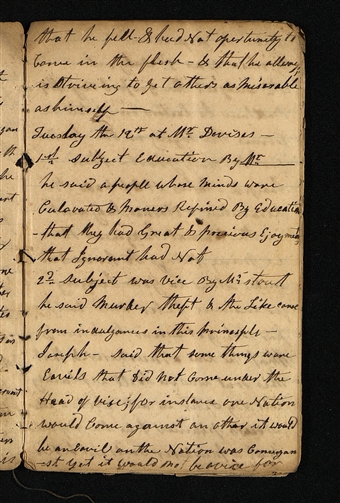 that he fell - & had Not opertunity to
Come in the flesh - & that he allways
is Striveing to get others as miserable
as himself —
Tuesday the 12th at Mr. Devises -
1st subject Education By Mr. —
he said a people whose minds ware
Culavated & Maners Refined By Education
- that they had Great & precious Enjoyments
that Ignorant had Not
2d subject was vice By Mr Stout
he said Murder theft & the Like came
from indulgances in this principle -
Joseph - said that some things ware
Eavils that did Not Come under the
Head of vise; for instance one Nation
would Come against an other it would
be an Eavil on the Nation was Comeagan
-st yet it would Not be a vice for